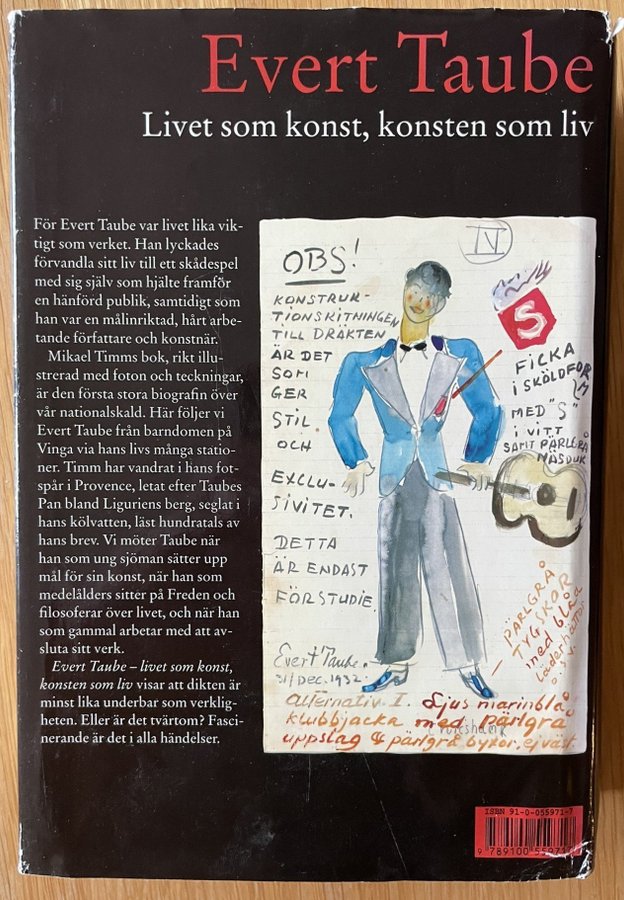 Evert Taube
Livet som konst, konsten som liv
För Evert Taube var livet lika vik-
tigt som verket. Han lyckades
förvandla sitt liv till ett skådespel
med sig själv som hjälte framför
en hänförd publik, samtidigt som
han var en målinriktad, hårt arbe-
tande författare och konstnär.
Mikael Timms bok, rikt illu-
strerad med foton och teckningar,
är den första stora biografin över
vår nationalskald. Här följer vi
Evert Taube från barndomen på
Vinga via hans livs många statio-
ner. Timm har vandrat i hans fot-
spår i Provence, letat efter Taubes
Pan bland Liguriens berg, seglat i
hans kölvatten, läst hundratals av
hans brev. Vi möter Taube när
han som ung sjöman sätter upp
mål för sin konst, när han som
medelålders sitter på Freden och
filosoferar över livet, och när han
som gammal arbetar med att av-
sluta sitt verk.
Evert Taube – livet som konst,
konsten som liv visar att dikten är
minst lika underbar som verklig-
heten. Eller är det tvärtom? Fasci-
nerande är det i alla händelser.
IV
OBS!
KONSTRUK-
TIONSKITNINGEN
TILL DRÄKTEN
ÄR DET
SOM
GER
STIL
OCH
EXCLU-
SIVITET.
DETTA
ÄR ENDAST
FÖRSTUDIE
S
FICKA
i SKÖLDFORM
MED "S"
i VITT
SAMT PÄRLGRÅ
NÄSDUK
— PÄRLGRÅ
TYGSKOR
med blå
läderhättor
o.s.v.
Evert Taube.
31/DEC. 1932.
alternativ I. Ljus marinblå
klubbjacka med pärlgrå
uppslag & pärlgrå byxor, ej väst.
ISBN 91-0-055971-7
9 789100 559717